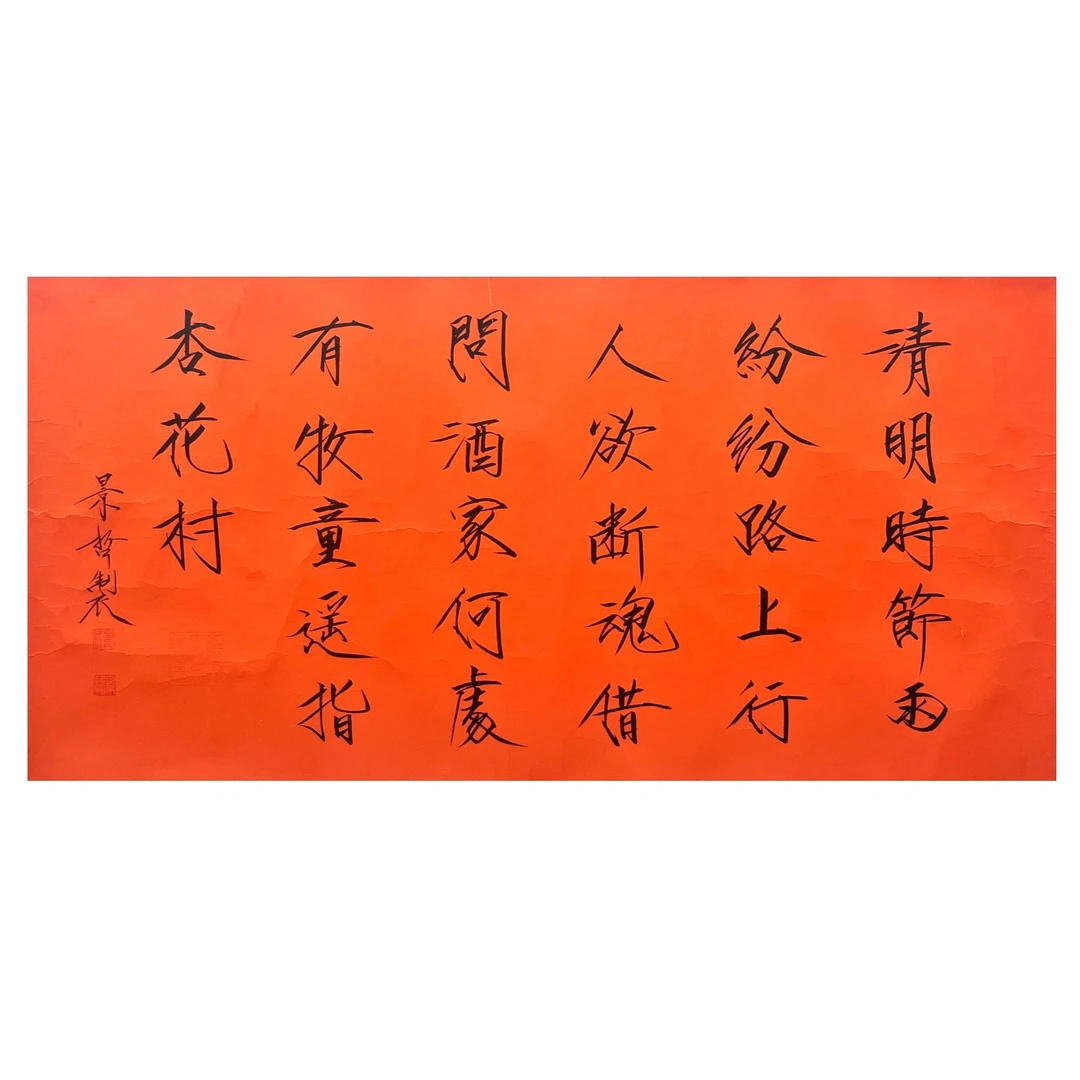 清明時節雨
紛紛路上行
人欲断魂借
問酒家何處
有牧童遥指
杏花村
景哲製